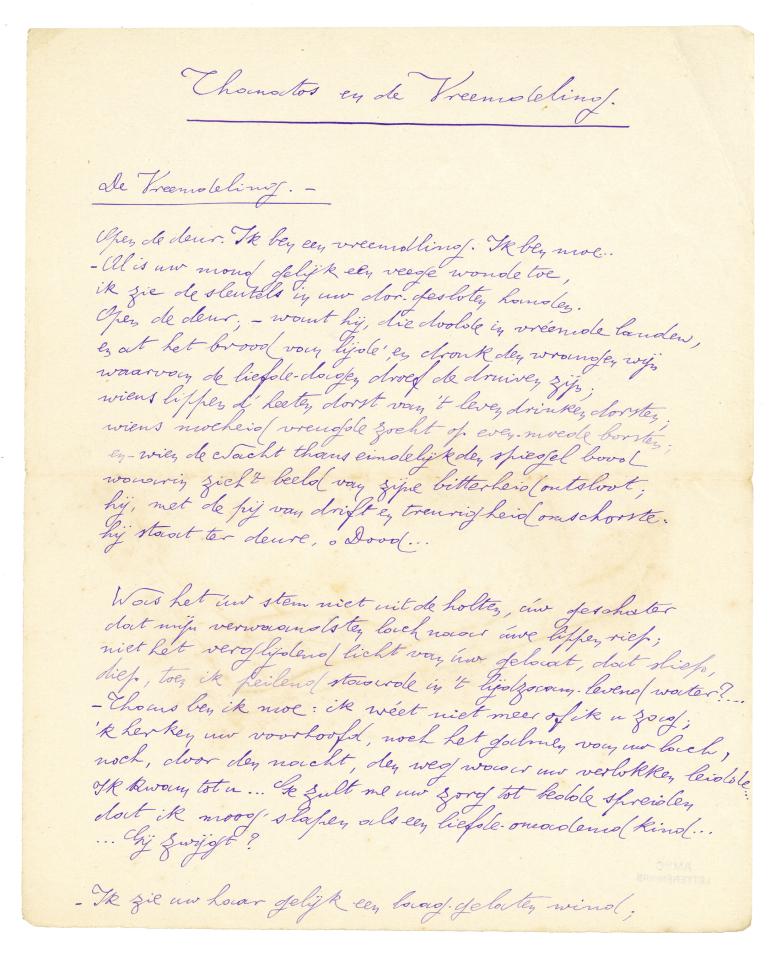 Thanatos en de Vreemdeling.
De Vreemdeling. –
Open de deur. Ik ben een vreemdling. Ik ben moe..
– Al is uw mond gelijk een veege wonde toe,
ik zie de sleutels in uw dor-gesloten handen.
Open de deur; – want hij, die doolde in vréemde landen,
en at het brood van lijde', en dronk den wrangen wijn
waarvan de liefde-dagen droef de druiven zijn;
wiens lippen d' heeten dorst van 't leven drinken dorsten;
wiens moeheid vreugde zocht op even-moede borsten;
en – wien de Nacht thans eindelijk den spiegel bood
waarin zich 't beeld van zijne bitterheid ontsloot;
hij, met de pij van drift en treurigheid omschorste –
hij staat ter deure, o Dood...
Was het úw stem niet uit de holten, úw geschater
dat mijn verwaandsten lach naar úwe lippen riep;
niet het verglijdend licht van úw gelaat, dat sliep,
diep, toen ik peilend staarde in 't lijdzaam-levend water?...
– Thans ben ik moe: ik wéet niet meer of ik u zag;
'k herken uw voorhoofd, noch het galmen van uw lach,
noch, door den nacht, den weg waar uw verlokken leidde...
Ik kwam tot u... Gij zult me uw zorg tot bedde spreiden
dat ik moog' slapen als een liefde-omademd kind...
... Gij zwijgt?
– Ik zie uw haar gelijk een laag-gelaten wind;
AMVC
LETTERENHUIS